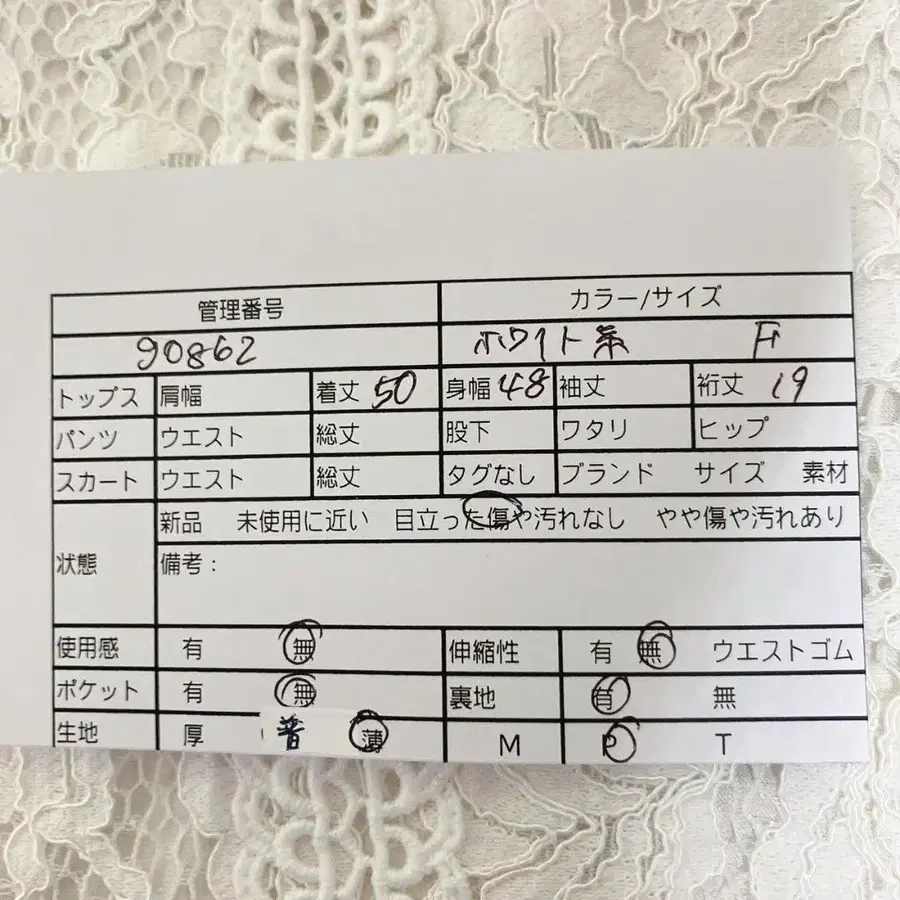 管理番号 カラー/サイズ
90862 ホワイト系 F
トップス 肩幅 着丈 50 身幅 48 袖丈 裄丈 19
パンツ ウエスト 総丈 股下 ワタリ ヒップ
スカート ウエスト 総丈 タグなし ブランド サイズ 素材
状態 新品 未使用に近い 目立った傷や汚れなし やや傷や汚れあり
備考：
使用感 有 無 伸縮性 有 無 ウエストゴム
ポケット 有 無 裏地 有 無
生地 厚 普 薄 M P T